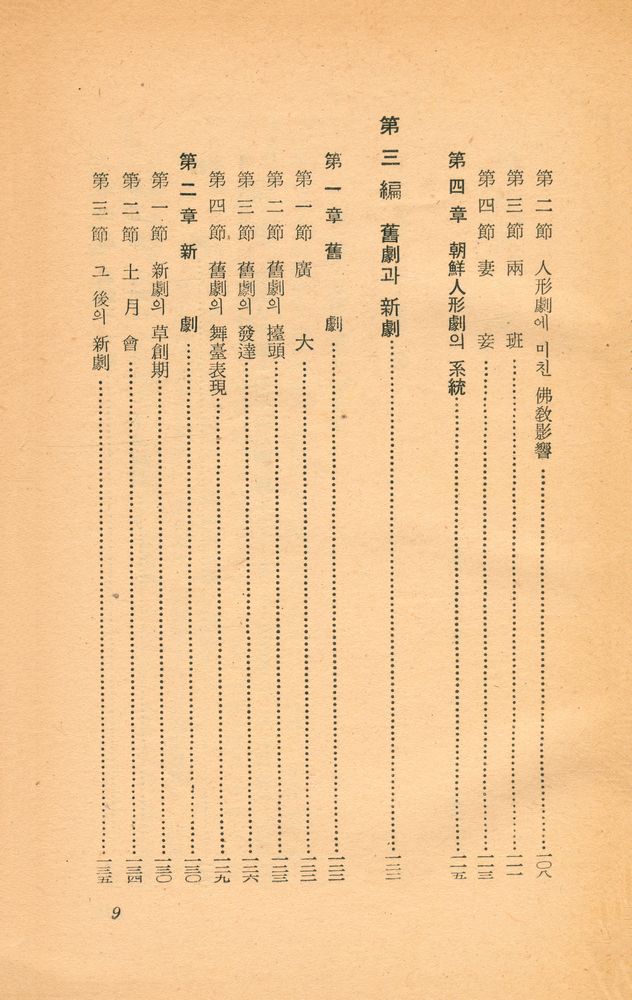 第二節 人形劇에 미친 佛敎影響……一〇八
第三節 兩班……一一一
第四節 妻妾……一一三
第四章 朝鮮人形劇의 系統……一一五
第三編 舊劇과 新劇……一二二
第一章 舊劇……一二二
第一節 廣大……一二二
第二節 舊劇의 擡頭……一二三
第三節 舊劇의 發達……一二六
第四節 舊劇의 舞臺表現……一二九
第二章 新劇……一三〇
第一節 新劇의 草創期……一三〇
第二節 土月會……一三四
第三節 그 後의 新劇……一三五
9